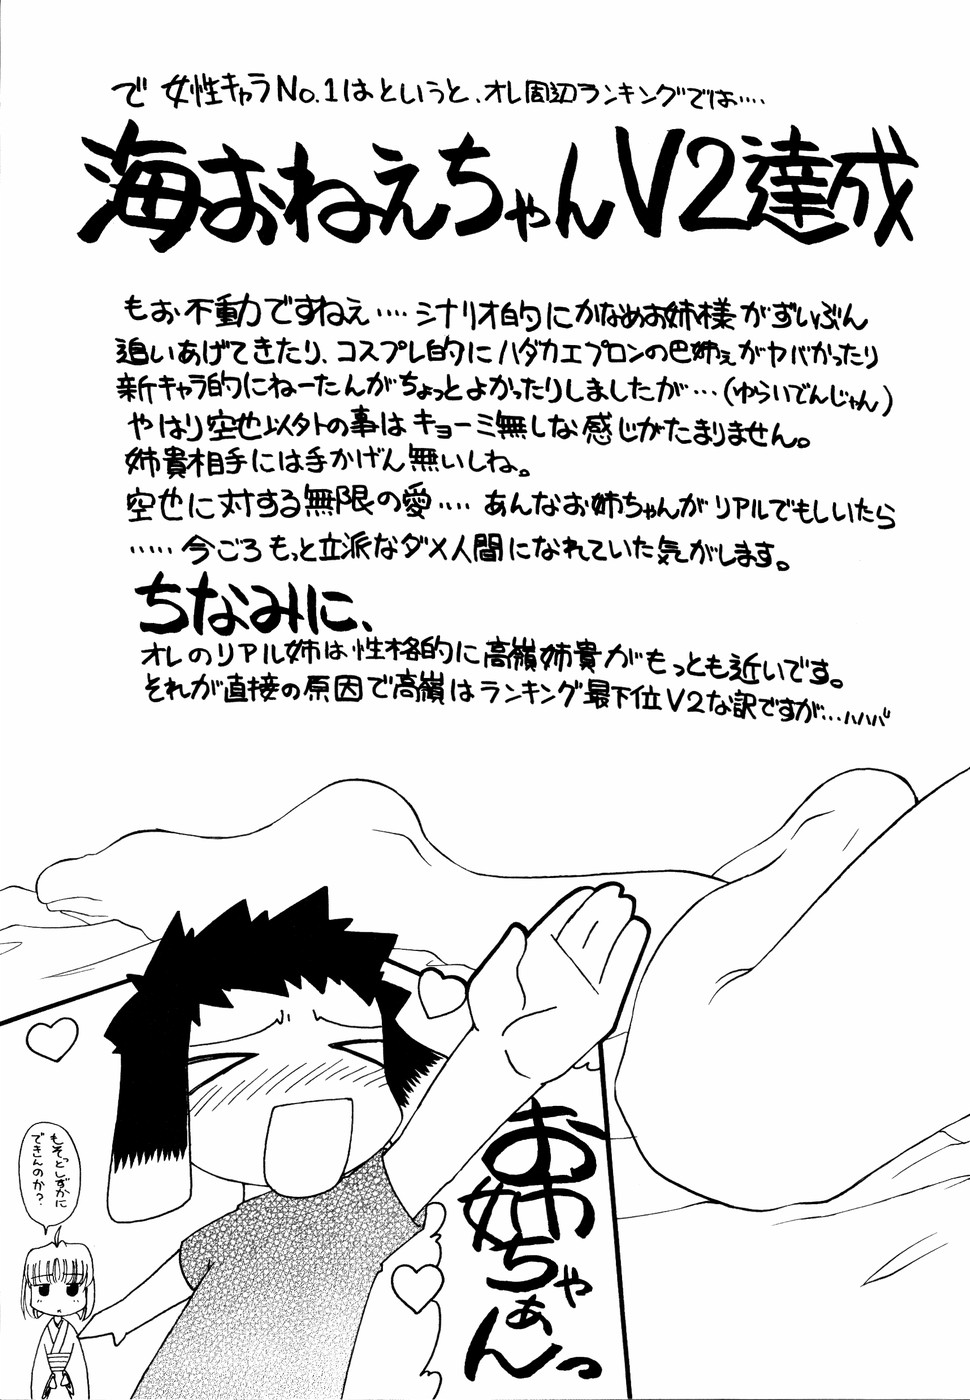 で 女性キャラNo.1はというと、オレ周辺ランキングでは‥‥
海おねえちゃんV2達成
もお不動ですねえ‥‥シナリオ的にかなめお姉様がずいぶん
追いあげてきたり、コスプレ的にハダカエプロンの巴姉ぇがヤバかったり
新キャラ的にねーたんがちょっとよかったりしましたが…(ゆらいでんじゃん)
やはり空也以外の事はキョーミ無しな感じがたまりません。
姉貴相手には手かげん無いしね。
空也に対する無限の愛‥‥ あんなお姉ちゃんがリアルでもしいたら
‥‥‥今ごろもっと立派なダメ人間になれていた気がします。
ちなみに、
オレのリアル姉は性格的に高嶺姉貴がもっとも近いです。
それが直接の原因で高嶺はランキング最下位V2な訳ですが…ハハハ"
お姉ちゃぁんっ
もそっとしずかに
できんのか?